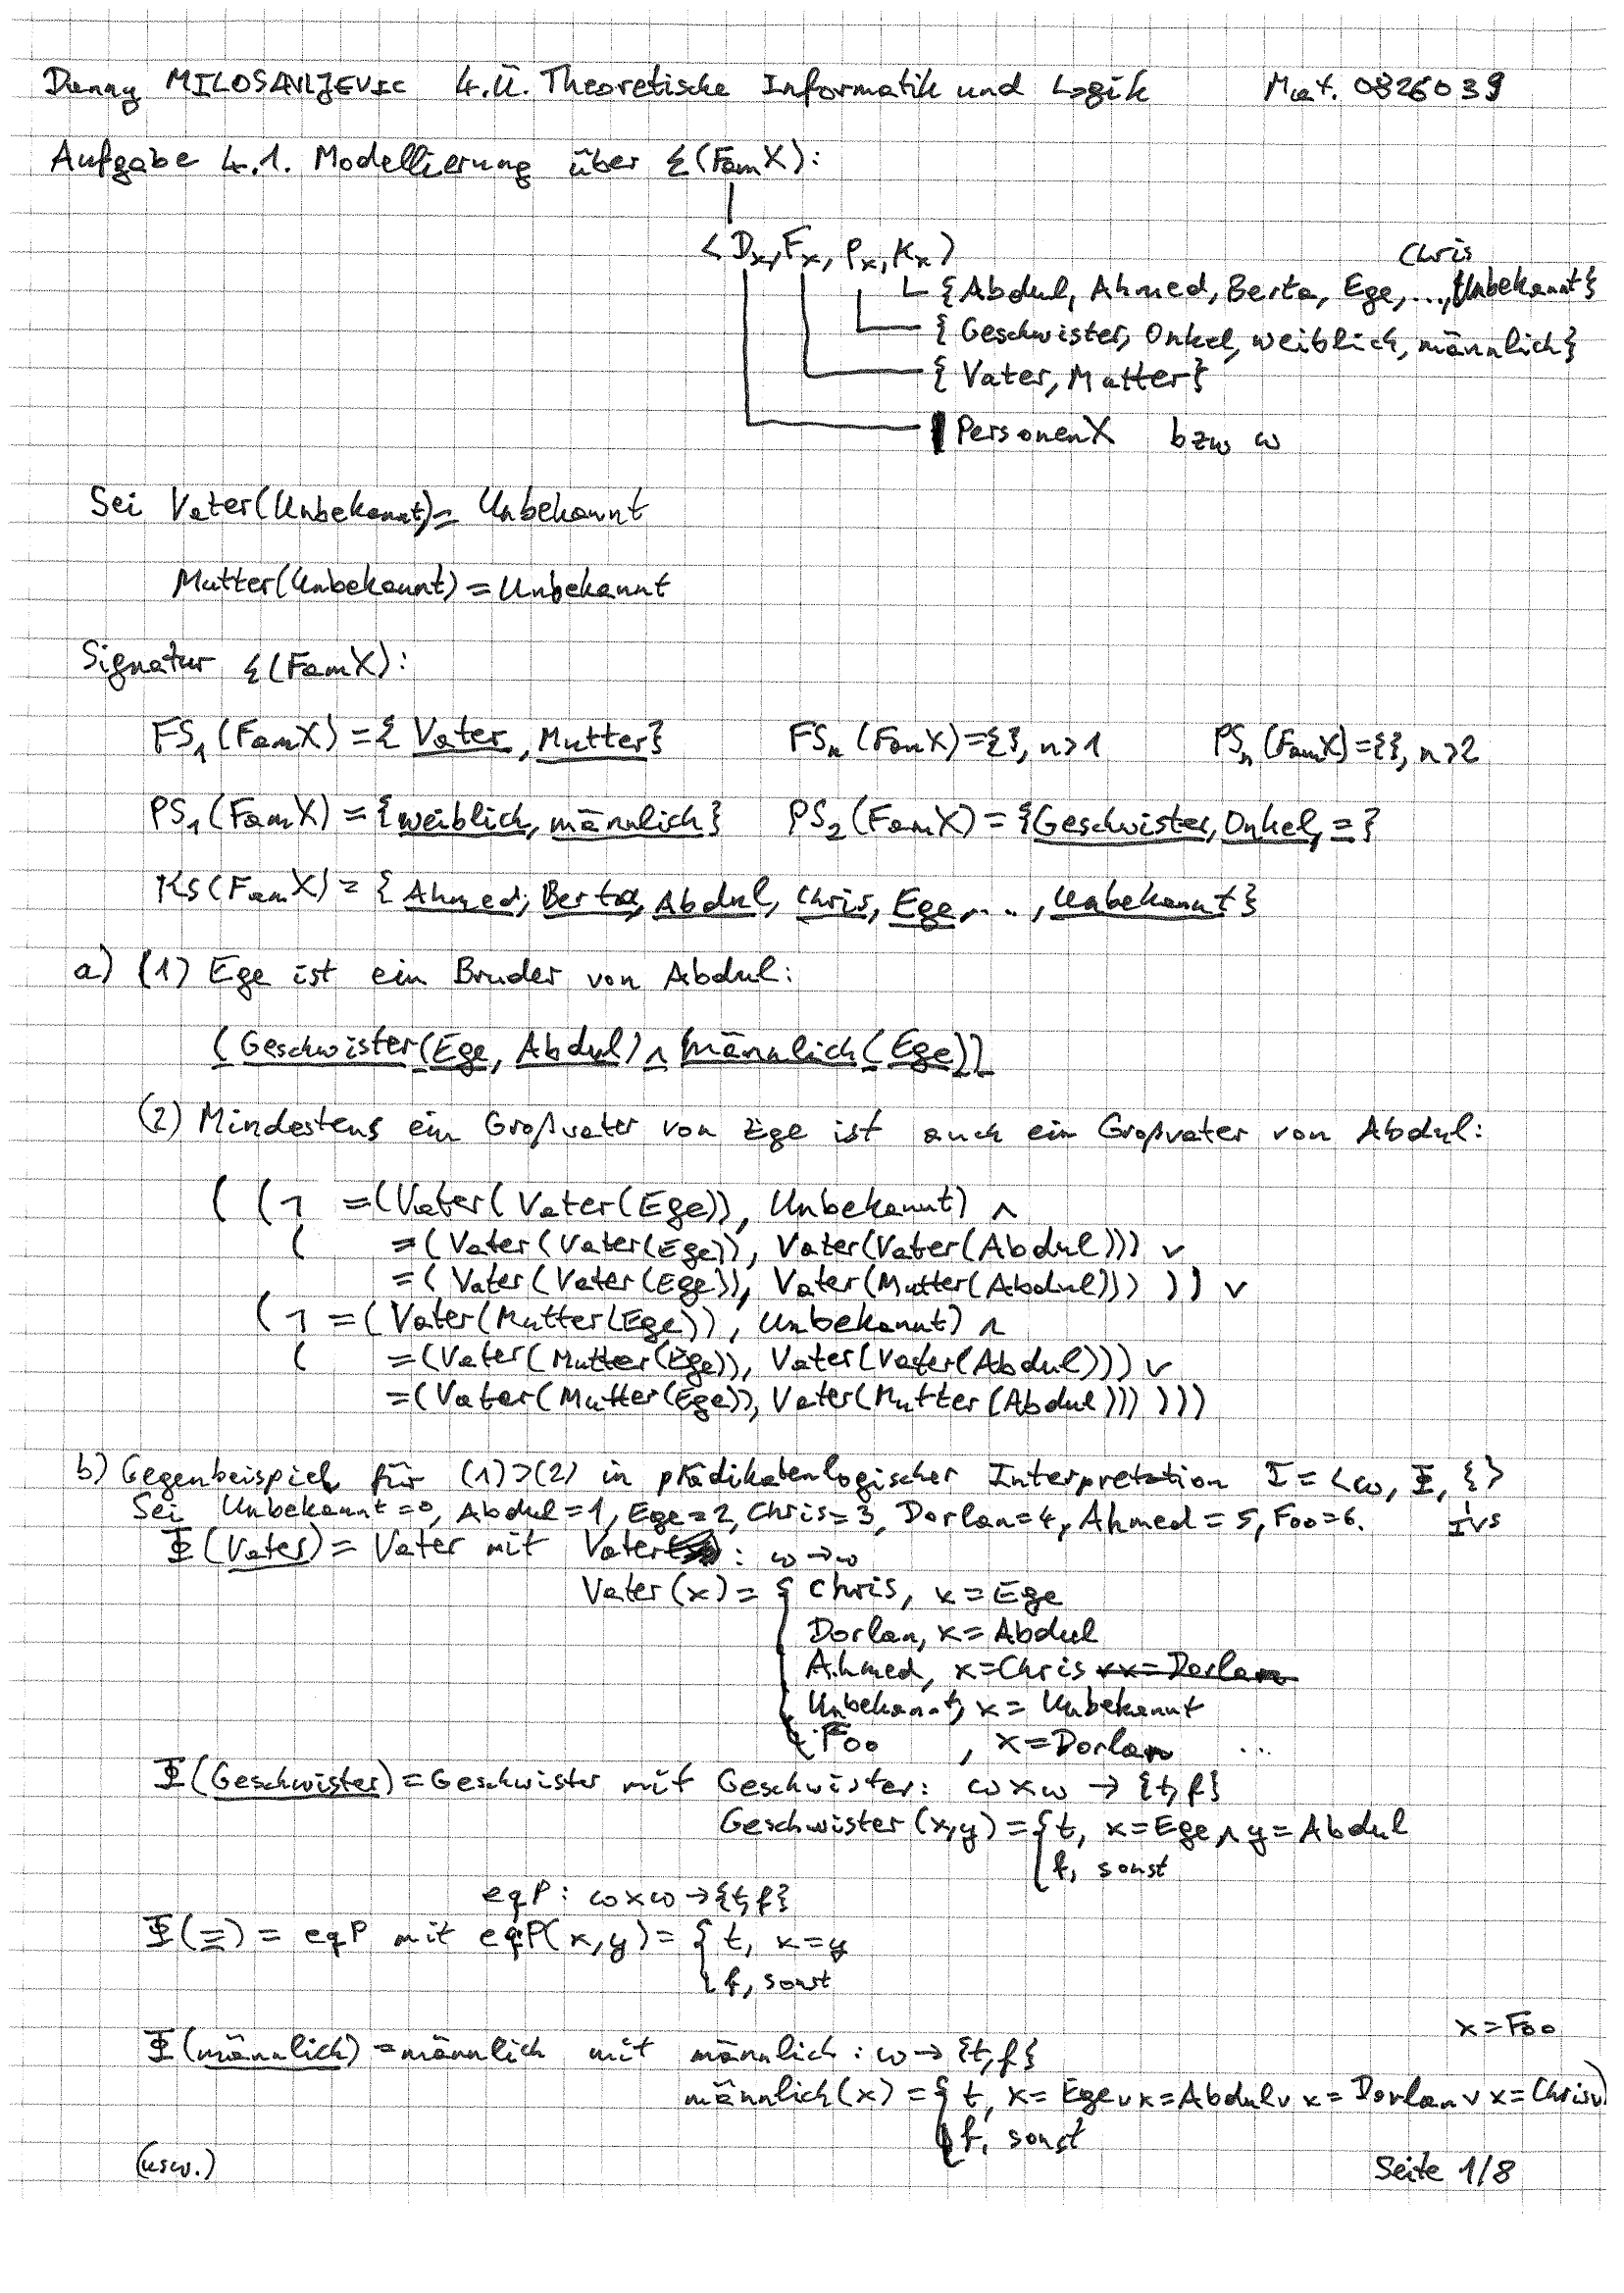 Danny MILOSAVLJEVIC 4.Ü. Theoretische Informatik und Logik Mat. 0826039
Aufgabe 4.1. Modellierung über Σ(FamX):
< Dx, Fx, Px, Kx >
Chris
{Abdul, Ahmed, Berta, Ege, ..., Unbekannt}
{Geschwister, Onkel, weiblich, männlich}
{Vater, Mutter}
PersonenX bzw ω
Sei Vater(Unbekannt) = Unbekannt
Mutter(Unbekannt) = Unbekannt
Signatur Σ(FamX):
FS₁(FamX) = {Vater, Mutter} FSₙ(FamX) = {}, n>1 PSₙ(FamX) = {}, n>2
PS₁(FamX) = {weiblich, männlich} PS₂(FamX) = {Geschwister, Onkel, =}
KS(FamX) = {Ahmed, Berta, Abdul, Chris, Ege, ..., Unbekannt}
a) (1) Ege ist ein Bruder von Abdul:
(Geschwister(Ege, Abdul) ∧ männlich(Ege))
(2) Mindestens ein Großvater von Ege ist auch ein Großvater von Abdul:
( (¬ =(Vater(Vater(Ege)), Unbekannt) ∧
( =(Vater(Vater(Ege)), Vater(Vater(Abdul))) ∨
=(Vater(Vater(Ege)), Vater(Mutter(Abdul))) )) ∨
(¬ =(Vater(Mutter(Ege)), Unbekannt) ∧
( =(Vater(Mutter(Ege)), Vater(Vater(Abdul))) ∨
=(Vater(Mutter(Ege)), Vater(Mutter(Abdul))) )))
b) Gegenbeispiel für (1)⊃(2) in prädikatenlogischer Interpretation I = <ω, Φ, {}>
Sei Unbekannt=0, Abdul=1, Ege=2, Chris=3, Dorlan=4, Ahmed=5, Foo=6. IVS
Φ(Vater) = Vater mit Vater : ω → ω
Vater(x) = { Chris, x = Ege
Dorlan, x = Abdul
Ahmed, x = Chris ∨x=Dorlan
Unbekannt, x = Unbekannt
Foo , x = Dorlan ...
Φ(Geschwister) = Geschwister mit Geschwister: ω×ω → {t,f}
Geschwister(x,y) = { t, x=Ege ∧ y=Abdul
f, sonst
eqP: ω×ω → {t,f}
Φ(=) = eqP mit eqP(x,y) = { t, x=y
f, sonst
x=Foo
Φ(männlich) = männlich mit männlich: ω → {t,f}
männlich(x) = { t, x=Ege ∨ x=Abdul ∨ x=Dorlan ∨ x=Chris ∨
f, sonst
(usw.) Seite 1/8